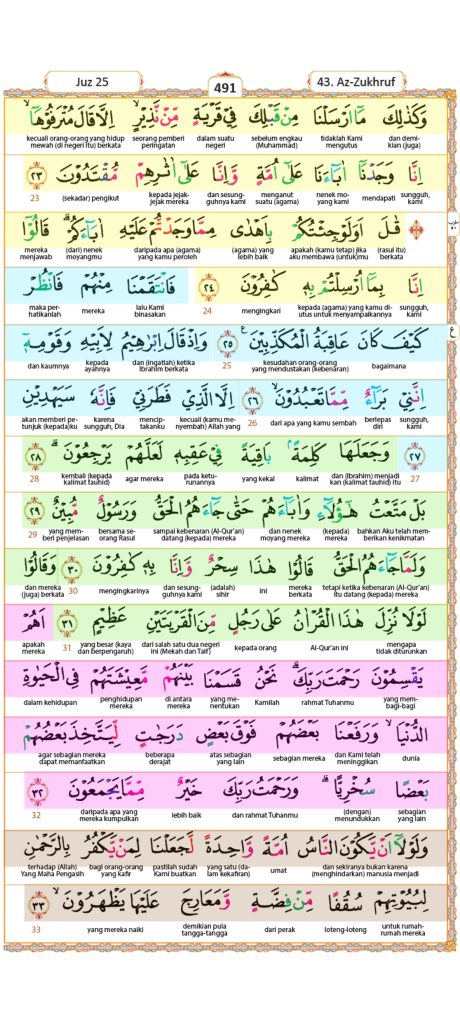 Juz 25
491
43. Az-Zukhruf
وَكَذٰلِكَ مَآ اَرْسَلْنَا مِنْ قَبْلِكَ فِيْ قَرْيَةٍ مِّنْ نَّذِيْرٍ اِلَّا قَالَ مُتْرَفُوْهَآ ۙ
dan demikian (juga) tidaklah Kami mengutus sebelum engkau (Muhammad) dalam suatu negeri seorang pemberi peringatan kecuali orang-orang yang hidup mewah (di negeri itu) berkata
اِنَّا وَجَدْنَآ اٰبَاۤءَنَا عَلٰٓى اُمَّةٍ وَّاِنَّا عَلٰٓى اٰثٰرِهِمْ مُّقْتَدُوْنَ ٢٣
sungguh, kami mendapati nenek moyang kami menganut suatu (agama) dan sesungguhnya kami kepada jejak-jejak mereka (sekadar) pengikut 23
۞ قٰلَ اَوَلَوْ جِئْتُكُمْ بِاَهْدٰى مِمَّا وَجَدْتُّمْ عَلَيْهِ اٰبَاۤءَكُمْ ۗ قَالُوْٓا
(rasul itu) berkata apakah (kamu tetap) jika aku membawa (untuk)mu (agama) yang lebih baik daripada apa (agama) yang kamu peroleh (dari) nenek moyangmu mereka menjawab
اِنَّا بِمَآ اُرْسِلْتُمْ بِهٖ كٰفِرُوْنَ ٢٤ فَانْتَقَمْنَا مِنْهُمْ فَانْظُرْ
sungguh, kami kepada (agama) yang kamu diutus untuk menyampaikannya mengingkari 24 lalu Kami binasakan mereka maka perhatikanlah
كَيْفَ كَانَ عَاقِبَةُ الْمُكَذِّبِيْنَ ࣖ ٢٥ وَاِذْ قَالَ اِبْرٰهِيْمُ لِاَبِيْهِ وَقَوْمِهٖٓ
ع
bagaimana kesudahan orang-orang yang mendustakan (kebenaran) 25 dan (ingatlah) ketika Ibrahim berkata kepada ayahnya dan kaumnya
اِنَّنِيْ بَرَاۤءٌ مِّمَّا تَعْبُدُوْنَ ۙ ٢٦ اِلَّا الَّذِيْ فَطَرَنِيْ فَاِنَّهٗ سَيَهْدِيْنِ
sungguh, aku berlepas diri dari apa yang kamu sembah 26 kecuali (kamu menyembah) Allah yang menciptakanku karena sungguh, Dia akan memberi petunjuk (kepada)ku
٢٧ وَجَعَلَهَا كَلِمَةً ۢ بَاقِيَةً فِيْ عَقِبِهٖ لَعَلَّهُمْ يَرْجِعُوْنَ ٢٨
27 dan (Ibrahim) menjadikan (kalimat tauhid) itu kalimat yang kekal pada keturunannya agar mereka kembali (kepada kalimat tauhid) 28
بَلْ مَتَّعْتُ هٰٓؤُلَاۤءِ وَاٰبَاۤءَهُمْ حَتّٰى جَاۤءَهُمُ الْحَقُّ وَرَسُوْلٌ مُّبِيْنٌ ٢٩
bahkan Aku telah memberikan kenikmatan (kepada) mereka dan nenek moyang mereka sampai kebenaran (Al-Qur'an) datang (kepada) mereka bersama seorang Rasul yang memberi penjelasan 29
وَلَمَّا جَاۤءَهُمُ الْحَقُّ قَالُوْا هٰذَا سِحْرٌ وَّاِنَّا بِهٖ كٰفِرُوْنَ ٣٠ وَقَالُوْا
tetapi ketika kebenaran (Al-Qur'an) itu datang (kepada) mereka mereka berkata ini (adalah) sihir dan sesungguhnya kami mengingkarinya 30 dan mereka (juga) berkata
لَوْلَا نُزِّلَ هٰذَا الْقُرْاٰنُ عَلٰى رَجُلٍ مِّنَ الْقَرْيَتَيْنِ عَظِيْمٍ ٣١ اَهُمْ
mengapa tidak diturunkan Al-Qur'an ini kepada orang dari salah satu dua negeri ini (Mekah dan Taif) yang besar (kaya dan berpengaruh) 31 apakah mereka
يَقْسِمُوْنَ رَحْمَتَ رَبِّكَ ۗ نَحْنُ قَسَمْنَا بَيْنَهُمْ مَّعِيْشَتَهُمْ فِى الْحَيٰوةِ
yang membagi-bagi rahmat Tuhanmu Kamilah yang menentukan di antara mereka penghidupan mereka dalam kehidupan
الدُّنْيَا ۙ وَرَفَعْنَا بَعْضَهُمْ فَوْقَ بَعْضٍ دَرَجٰتٍ لِّيَتَّخِذَ بَعْضُهُمْ
dunia dan Kami telah meninggikan sebagian mereka atas sebagian yang lain beberapa derajat agar sebagian mereka dapat memanfaatkan
بَعْضًا سُخْرِيًّا ۗ وَرَحْمَتُ رَبِّكَ خَيْرٌ مِّمَّا يَجْمَعُوْنَ ٣٢
sebagian yang lain (dengan) menundukkan dan rahmat Tuhanmu lebih baik daripada apa yang mereka kumpulkan 32
وَلَوْلَآ اَنْ يَّكُوْنَ النَّاسُ اُمَّةً وَّاحِدَةً لَّجَعَلْنَا لِمَنْ يَّكْفُرُ بِالرَّحْمٰنِ
dan sekiranya bukan karena (menghindarkan) manusia menjadi umat yang satu (dalam kekafiran) pastilah sudah Kami buatkan bagi orang-orang yang kafir terhadap (Allah) Yang Maha Pengasih
لِبُيُوْتِهِمْ سُقُفًا مِّنْ فِضَّةٍ وَّمَعَارِجَ عَلَيْهَا يَظْهَرُوْنَ ۙ ٣٣
untuk rumah-rumah mereka loteng-loteng dari perak demikian pula tangga-tangga yang mereka naiki 33